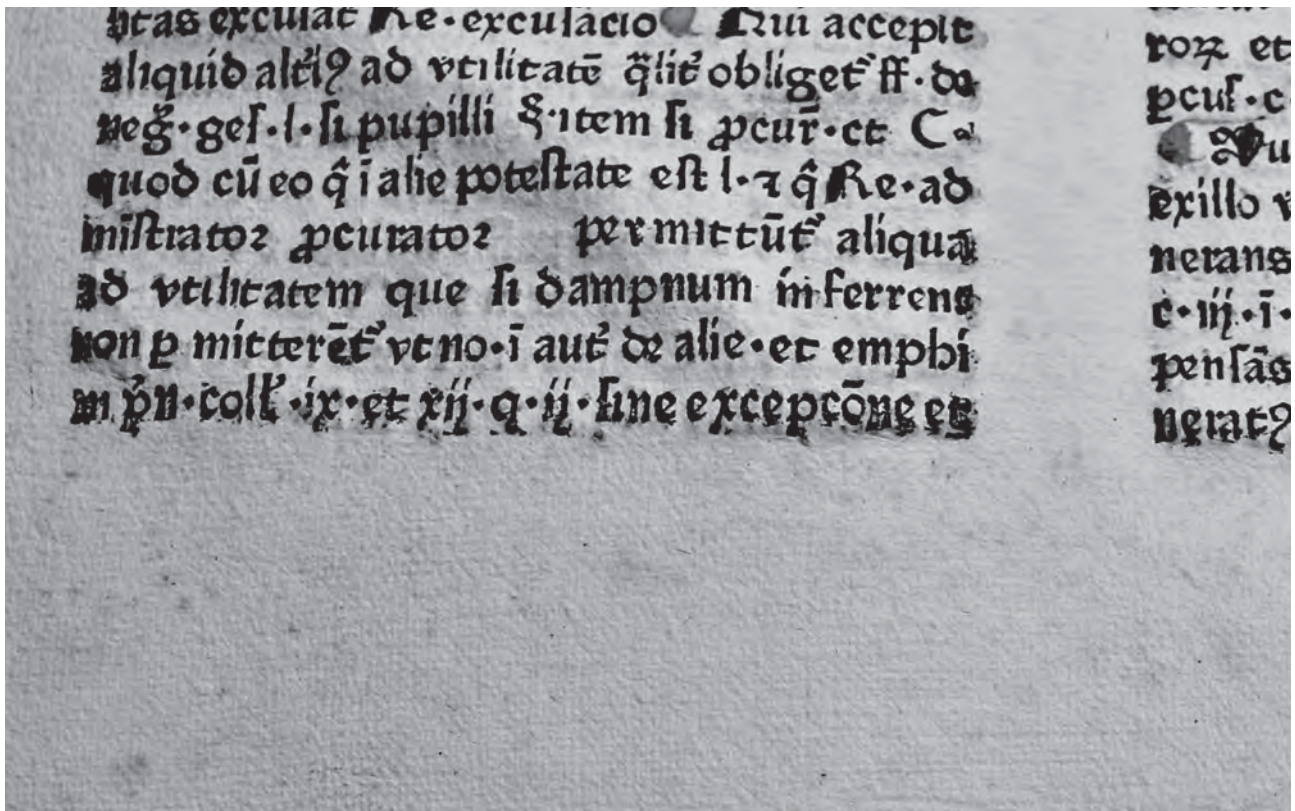 ptas excusat Re·excusacio Qui accepit
aliquid altiꝰ ad vtilitatē q̄lit᷑ obliget᷑ ff·de
neg̃·ges·l·si pupilli §·item si ꝓcur̃·et C·
quod cū eo q̂ ī alie potestate est l·ꝛ q̂ Re·ad
ministrator ꝓcurator permittūt᷑ aliqua
ad vtilitatem que si dampnum inferrent
non ꝑ mitterēt᷑ vt no·ī aut᷑ de alie·et emphi
in pͥn·coll᷑·ix·et xij·q·ij·sine excepcōne et
roꝝ et
ꝑcus·c·
exillo v
nerans
c·iij·ī·
pensās
neratꝰ